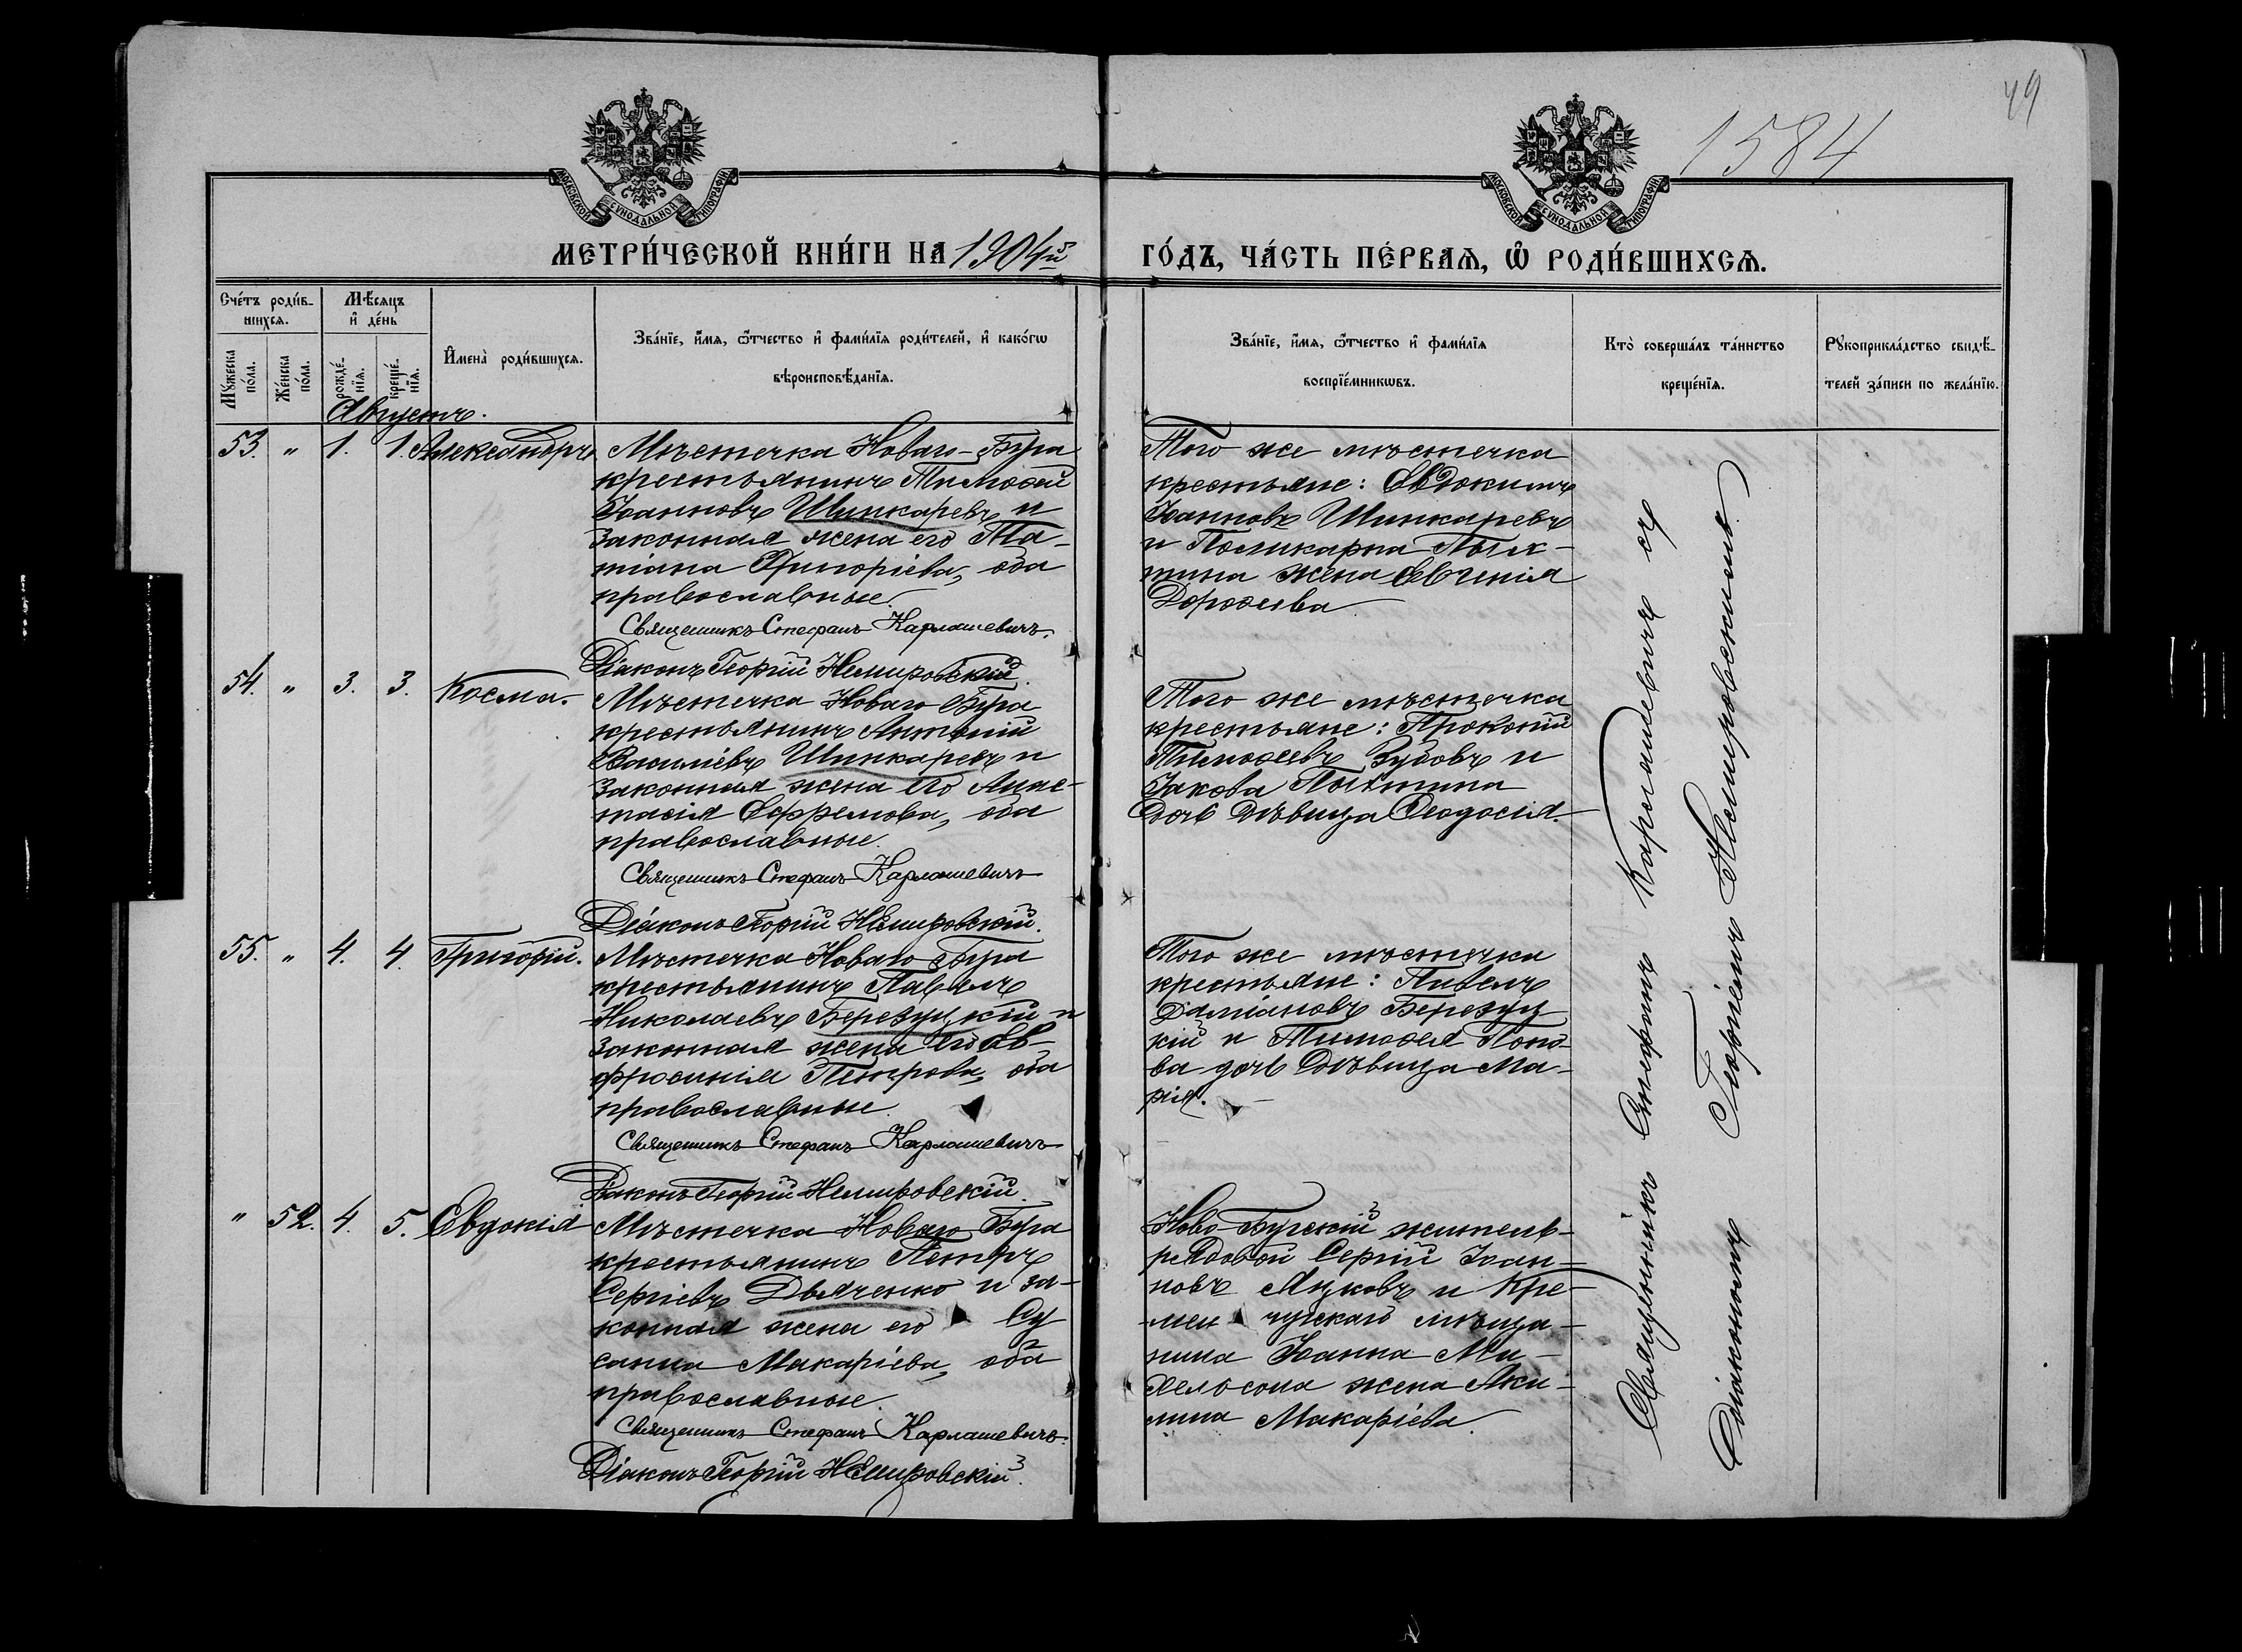 49
1584
МОСКОВСКОЙ СѴНОДАЛЬНОЙ ТИПОГРАФІИ
МОСКОВСКОЙ СѴНОДАЛЬНОЙ ТИПОГРАФІИ
МЕТРИ́ЧЕСКОЙ КНИ́ГИ НА 1904й ГО́ДЪ, ЧА́СТЬ ПЕ́РВАѦ, Ѡ҆ РОДИ́ВШИХСѦ.
Сче́тъ роди́в-
шихсѧ.
Мѣ́сѧцъ
и҆ де́нь
Мꙋ́жеска по́ла.
Же́нска по́ла.
рожде́-
нїѧ.
креще́-
нїѧ.
И҆мена̀ роди́вшихсѧ.
Зва́нїе, и҆́мѧ, ѻ҆́тчество и҆ фами́лїѧ роди́телей, и҆ како́гѡ
вѣроисповѣ́данїѧ.
Зва́нїе, и҆́мѧ, ѻ҆́тчество и҆ фами́лїѧ
воспрїе́мникѡвъ.
Кто̀ соверша́лъ та́инство
креще́нїѧ.
Рꙋкоприкла́дство свидѣ́-
телей за́писи по жела́нїю.
Августъ.
53. " 1. 1. Александръ
Мѣстечка Новаго-Буга
крестьянинъ Тимоѳей
Іоанновъ Шинкаревъ и
законная жена его Та-
тіана Григоріева, оба
православные.
Священникъ Стефанъ Карлашевичъ.
Діаконъ Георгій Немировскій.
Того же мѣстечка
крестьяне: Евдокимъ
Іоанновъ Шинкаревъ
и Поликарпа Пых-
тина жена Евгенія
Дороѳеева
54. " 3. 3. Косма.
Мѣстечка Новаго Буга
крестьянинъ Антоній
Василіевъ Шинкаревъ и
законная жена его Анас-
тасія Ефремова, оба
православные.
Священникъ Стефанъ Карлашевичъ
Діаконъ Георгій Немировскій.
Того же мѣстечка
крестьяне: Прокопій
Тимоѳеевъ Зубовъ и
Іакова Пыхтина
дочь дѣвица Ѳеодосія.
55. " 4. 4. Григорій.
Мѣстечка Новаго Буга
крестьянинъ Павелъ
Николаевъ Березуцкій и
законная жена его Ев-
фросинія Петрова, оба
православные.
Священникъ Стефанъ Карлашевичъ
Діаконъ Георгій Немировскій.
Того же мѣстечка
крестьяне: Павелъ
Даміановъ Березуц
кій и Тимоѳея Попо-
ва дочь дѣвица Ма-
рія.
" 52. 4. 5. Евдокія
Мѣстечка Новаго Буга
крестьянинъ Петръ
Сергіевъ Дьяченко и за-
конная жена его Су
санна Макаріева, оба
православные.
Священникъ Стефанъ Карлашевичъ.
Діаконъ Георгій Немировскій.
Ново-Бугскій житель
рядовой Сергій Іоан-
новъ и Кре-
мен чугскаго мѣща-
нина Іоанна Ми-
хельсона жена Аки-
лина Макаріева.
Священникъ Стефанъ Карлашевичъ съ
Діакономъ Георгіемъ Немировскимъ.